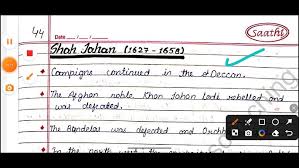 saathi
44
Date __/__/__
Shah Jahan (1627 - 1658)
Campaigns continued in the Deccan.
The Afghan noble Khan Jahan Lodi rebelled and
was defeated.
The Bundelas was defeated and Orchha